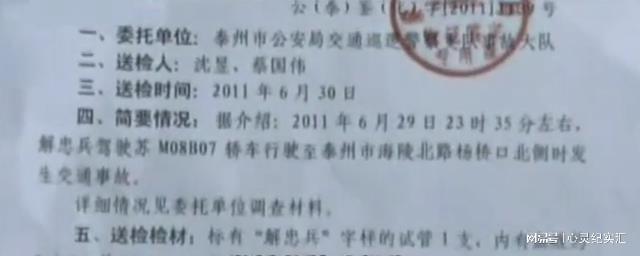 公（泰）鉴（化）字[2011]
一、委托单位：泰州市公安局交通巡逻警察支队事故大队
二、送检人：沈昱、蔡国伟
三、送检时间：2011 年 6 月 30 日
四、简要情况：据介绍：2011 年 6 月 29 日 23 时 35 分左右，
解忠兵驾驶苏 M08B07 轿车行驶至泰州市海陵北路杨桥口北侧时发
生交通事故。
详细情况见委托单位调查材料。
五、送检检材：标有“解忠兵”字样的试管 1 支，内有
搜狐号@心灵纪实汇